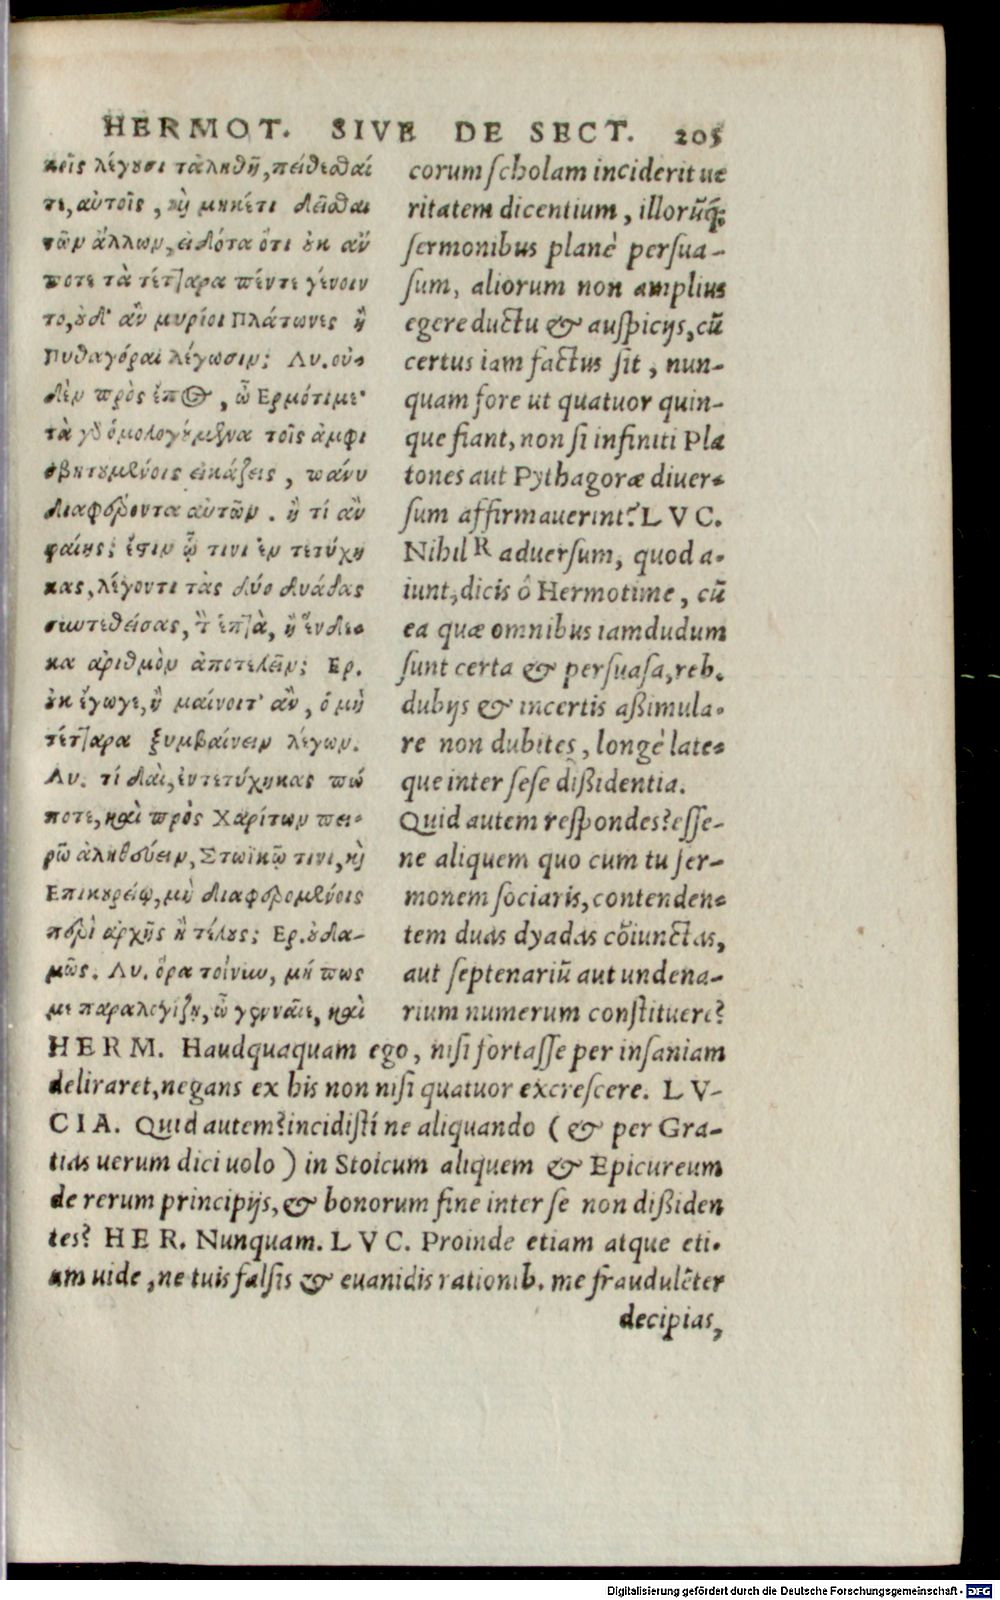 HERMOT. SIVE DE SECT. 205
κεῖς λέγουσι τἀληθῆ, πείθεσθαί
τε, αὐτοῖς, καὶ μηκέτι δεῖσθαι
τῶν ἄλλων, εἰδότα ὅτι οὐκ ἄν
ποτε τὰ τέτταρα πέντε γένοιν
το, οὐδ' ἂν μυρίοι Πλάτωνες ἢ
Πυθαγόραι λέγωσιν; Λυ. οὐ-
δὲν πρὸς ἔπος, ὦ Ερμότιμε·
τὰ γὰρ ὁμολογούμενα τοῖς ἀμφι
σβητουμένοις εἰκάζεις, πάνυ
διαφέροντα αὐτῶν. ἢ τί ἂν
φαίης; ἔστιν ᾧ τινι ἐν τετύχη
κας, λέγοντι τὰς δύο δυάδας
συντεθείσας, τ ἑπτὰ, ἢ ἕνδε-
κα ἀριθμὸν ἀποτελεῖν; Ερ.
οὐκ ἔγωγε, ἢ μαίνοιτ' ἂν, ὁ μὴ
τέτταρα ξυμβαίνειν λέγων.
Λυ. τί δαὶ, ἐντετύχηκας πώ
ποτε, καὶ πρὸς Χαρίτων πει-
ρῶ ἀληθεύειν, Στωϊκῷ τινι, καὶ
Επικουρείῳ, μὴ διαφερομένοις
περὶ ἀρχῆς ἢ τέλους; Ερ. οὐδα-
μῶς. Λυ. ὅρα τοίνυν, μή πως
με παραλογίζῃ, ὦ γενναῖε, καὶ
corum scholam inciderit ue
ritatem dicentium, illorūq́;
sermonibus planè persua-
sum, aliorum non amplius
egere ductu & auspicijs, cū
certus iam factus sit, nun-
quam fore ut quatuor quin-
que fiant, non si infiniti Pla
tones aut Pythagoræ diuer-
sum affirmauerint? LVC.
Nihil R aduersum, quod a-
iunt, dicis ô Hermotime, cū
ea quæ omnibus iamdudum
sunt certa & persuasa, reb.
dubijs & incertis aßimula-
re non dubites, longè late-
que inter sese dißidentia.
Quid autem respondes? esse-
ne aliquem quo cum tu ser-
monem sociaris, contenden-
tem duas dyadas cōiunctas,
aut septenariū aut undena-
rium numerum constituere?
HERM. Haudquaquam ego, nisi fortasse per insaniam
deliraret, negans ex his non nisi quatuor excrescere. LV-
CIA. Quid autem? incidisti ne aliquando ( & per Gra-
tias uerum dici uolo ) in Stoicum aliquem & Epicureum
de rerum principijs, & bonorum fine inter se non dißiden
tes? HER. Nunquam. LVC. Proinde etiam atque eti-
am uide, ne tuis falsis & euanidis rationib. me fraudulēter
decipias,
Digitalisierung gefördert durch die Deutsche Forschungsgemeinschaft - DFG